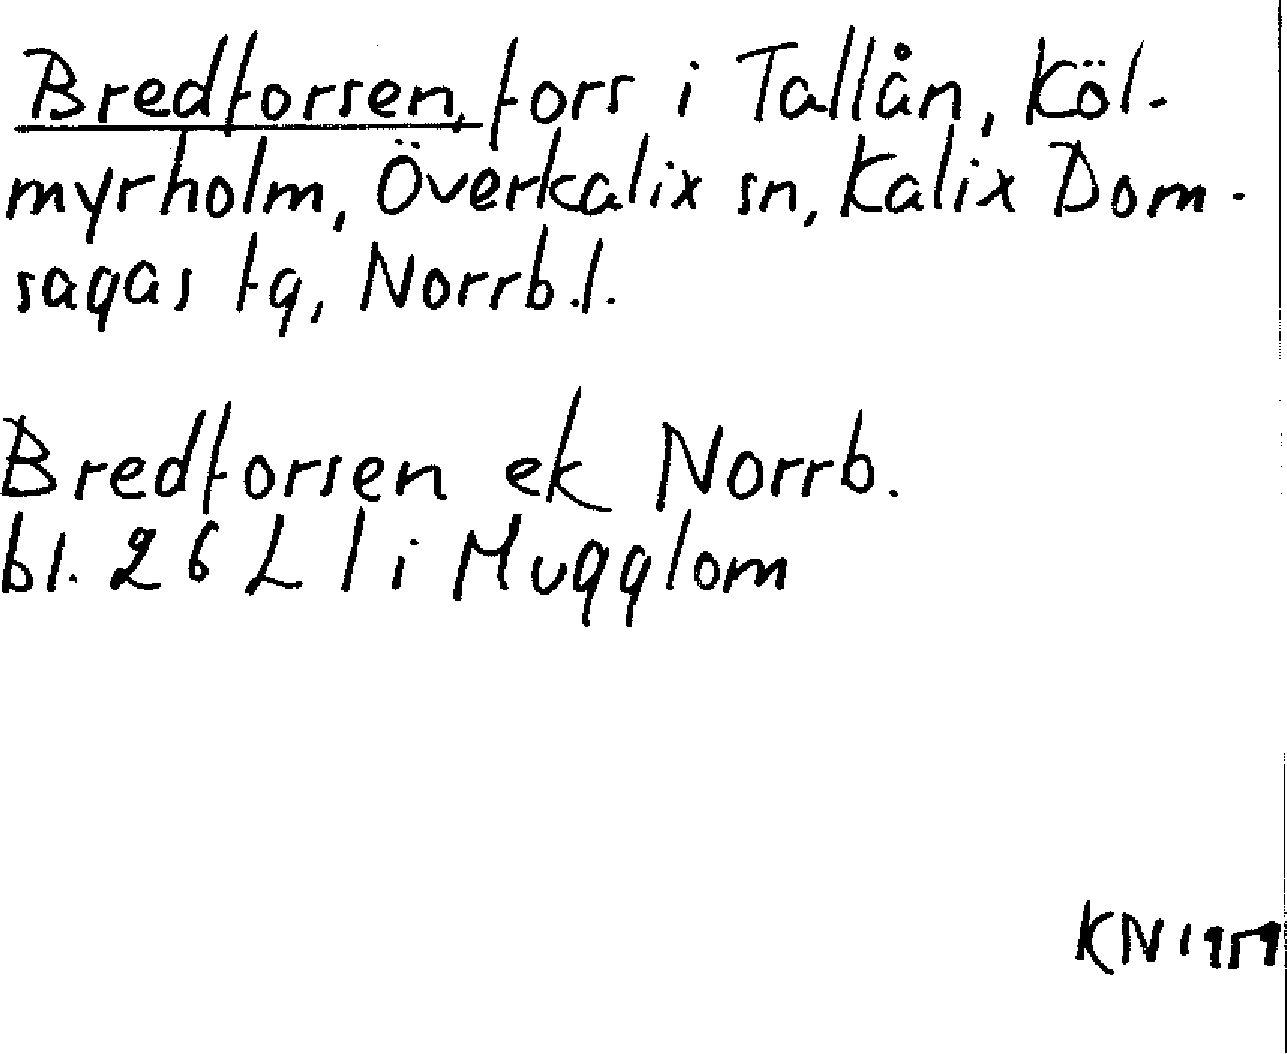 Bredforsen, fors i Tallån, Köl-
myrholm, Överkalix sn, Kalix Dom-
sagas tg, Norrb.l.
Bredforsen ek Norrb.
bl. 26 L l i Mugglom
KN